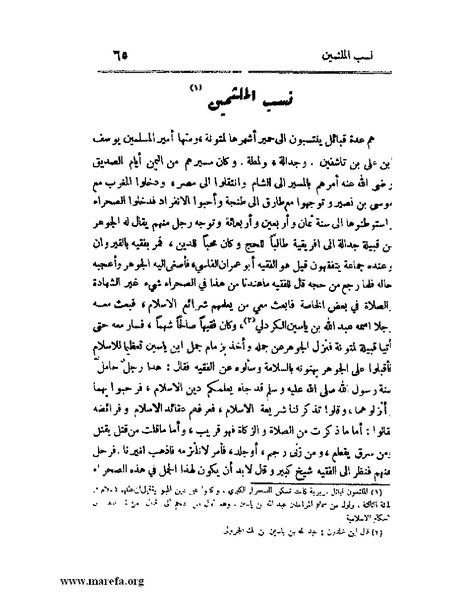 نسب الملثمين ٦٥
نسب الملثمين (١)
هم عدة قبائل ينتسبون الى حمير أشهرها لمتونة، ومنها أمير المسلمين يوسف
بن على بن تاشفين . وجدالة ، ولمطة . وكان مسيرهم من اليمن أيام الصديق
رضى الله عنه أمرهم بالمسير الى الشام وانتقلوا الى مصر، ودخلوا المغرب مع
موسى بن نصير وتوجهوا مع طارق الى طنجة وأحبوا الانفراد فدخلوا الصحراء
استوطنوها الى سنة ثمان وأربعين وأربعمائة وتوجه رجل منهم يقال له الجوهر
بن قبيلة جدالة الى افريقية طالباً للحج وكان محباً للدين ، فمر بفقيه بالقيروان
وعنده جماعة يتفقهون قيل هو الفقيه أبو عمران الفاسي، فأصغى اليه الجوهر وأعجبه
حاله فلما رجع من حجه قال للفقيه ماعندنا من هذا في الصحراء شيء غير الشهادة
الصلاة في بعض الخاصة فابعث معي من يعلمهم شرائع الاسلام ، فبعث معه
جلا اسمه عبد الله بن ياسين الكردلي (٢)، وكان فقيهاً صالحاً شهماً ، فسار معه حتى
أتيا قبيلة لمتونة فنزل الجوهر عن جمله وأخذ بزمام جمل ابن ياسين تعظيما للاسلام
فأقبلوا على الجوهر يهنونه بالسلامة وسألوه عن الفقيه فقال : هذا رجل حامل
سنة رسول الله صلى الله عليه وسلم قد جاء يعلمكم دين الاسلام ، فرحبوا بهما
أنزلوهما ، وقالوا : تذكر لنا شريعة الاسلام ، فعرفهم عقائد الاسلام وفرائضه
قالوا : أما ما ذكرت من الصلاة والزكاة فهو قريب ، وأما ماقلت من قتل يقتل
ومن سرق يقطع ، ومن زنى رجم ، أوجلد، فأمر لانلتزمه فاذهب الى غيرنا. فرحل
منهم فنظر الى الفقيه شيخ كبير وقال لابد أن يكون لهذا الجمل في هذه الصحراء
(١) الملثمون قبائل بربرية كانت تسكن
الاسلامية
(٢) قال ابن خلدون : عبد الله بن ياسين بن
www.marefa.org